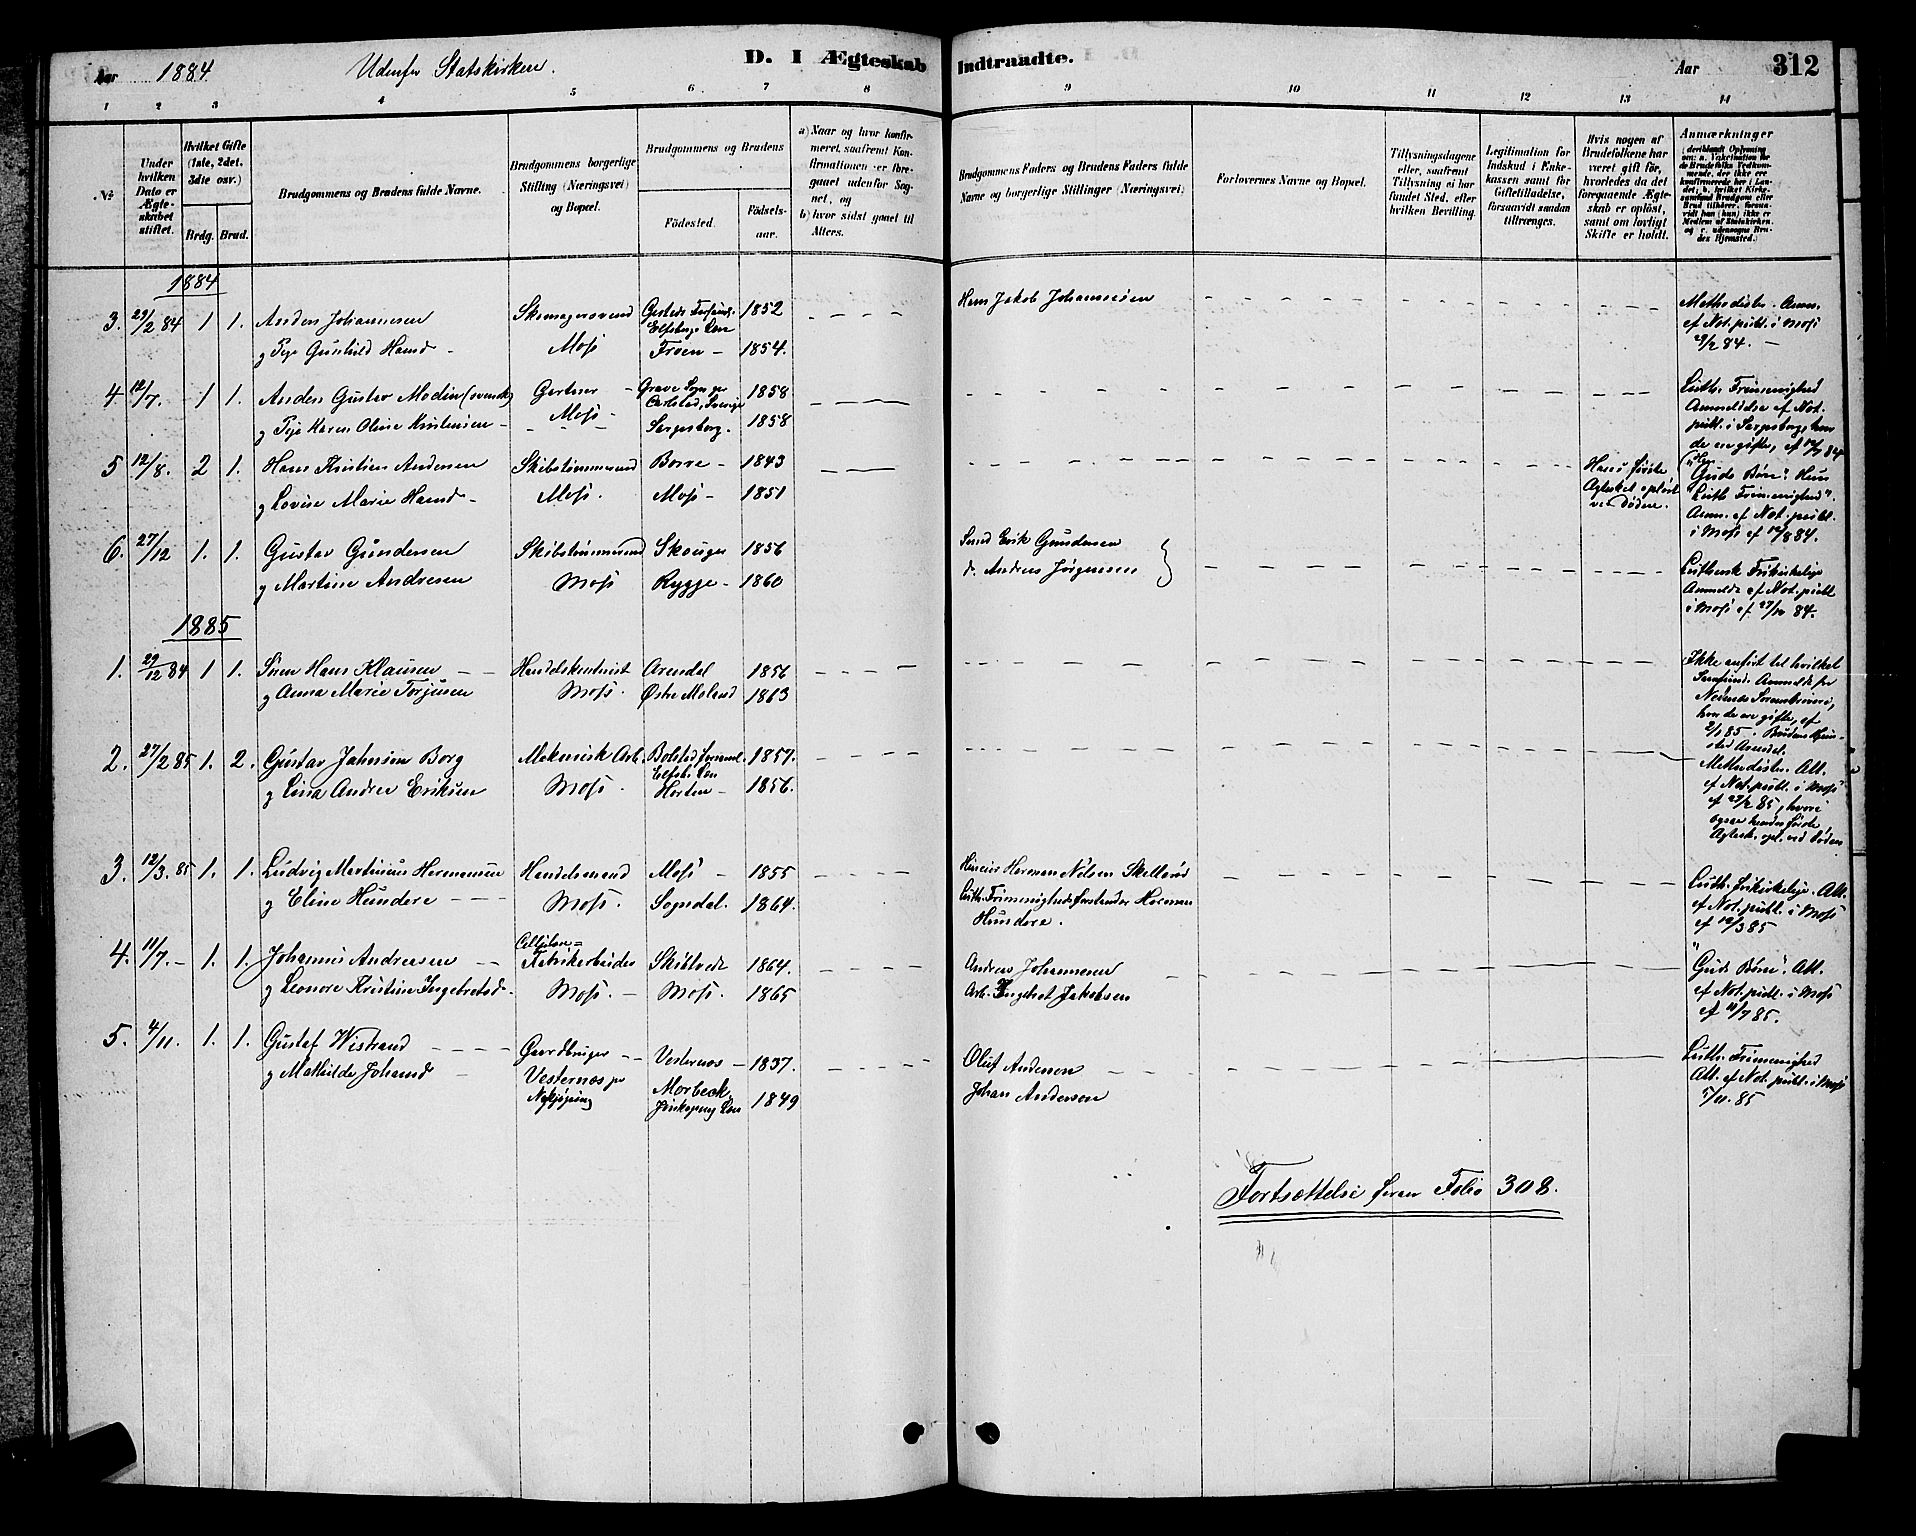 Aar 1884 Udenfor Statskirken. D. I Ægteskab Indtraadte. Aar 312
1 2 3 4 5 6 7 8 9 10 11 12 13 14
No.
Under hvilken Dato er Ægteskabet stiftet.
Hvilket Gifte (1ste, 2det, 3die osv.)
Brdg. Brud.
Brudgommens og Brudens fulde Navne.
Brudgommens borgerlige Stilling (Næringsvei) og Bopæl.
Brudgommens og Brudens
Fødested. Fødselsaar.
a) Naar og hvor konfirmeret, saafremt Konfirmationen er foregaaet udenfor Sognet, og
b) hvor sidst gaaet til Alters.
Brudgommens Faders og Brudens Faders fulde Navne og borgerlige Stillinger (Næringsvei).
Forlovernes Navne og Bopæl.
Tillysningsdagene eller, saafremt Tillysning ei har fundet Sted, efter hvilken Bevilling.
Legitimation for Indskud i Enkekassen samt for Giftetilladelse, forsaavidt saadan tiltrænges.
Hvis nogen af Brudefolkene har været gift før, hvorledes da det foregaaende Ægteskab er opløst, samt om lovligt Skifte er holdt.
Anmærkninger
1884
3. 29/2 84 1 1. Anders Johannesen Skomagersvend 1852 Hans Jakob Johannesen Methodister. Anm.
og Pige Gunhild Hansd. Moss Froen 1854. af Not. publ. i Moss
29/2 84.
4 12/7. 1 1. Anders Gustav Modin (svensk) Gartner Grave Sogn pr 1858 Luth. Frimenighed
Carlstad, Sverige Anmeldelse af Not.
og Pige Karen Oline Kristensen Moss Sarpsborg. 1858 publ. i Sarpsborg, hvor
de ere gifte, af 12/7 84
5 12/8. 2 1. Hans Kristian Andersen Skibstømmermand Borre 1843 Hans første
og Lovise Marie Hansd. Moss. Moss 1851 Ægteskab opløst ved Døden.
"Guds Børn". Hun
"Luth. Frimenighed".
Anm. af Not. publ.
i Moss af 12/8 84.
6. 27/12 1. 1. Gustav Gundersen Skibstømmermand Skouger 1856 Erik Gundersen
og Martine Andresen Moss Rygge 1860 Andreas Jørgensen
Luthersk Frikirkelige
Anmeldt af Not. publ.
i Moss af 27/12 84.
1885
1. 29/12 84 1 1. Sören Hans Klausen Handelskontorist Arendal 1856 Ikke anført til hvilket
og Anna Marie Torjusen Moss. Østre Moland 1863 Samfund. Anmeldt fra
Nedenæs Sorenskriveri,
hvor de ere gifte, af
2/1 85. Brudens Hjemsted Arendal.
2. 27/2 85 1. 2. Gustav Johnsen Borg Mekanisk Arb. 1857. Methodister. Att.
og Lina Andrea Eriksen Moss. Horten 1856. af Not. publ. i Moss
af 27/2 85, hvori
ogsaa hendes første
Ægtesk. opl. ved Døden
3. 12/3. 85 1. 1. Ludvig Martinius Hermansen Handelsmand Moss 1855 Herman Nilsen
og Eline Hundere Moss. Sogndal. 1864. Luth. Frimenigheds forstander Herman
Hundere.
Luth. frikirkelige. Att.
af Not. publ. i Moss
af 12/3 85
4. 11/7. 1. 1. Johannes Andreasen Fabrikarbeider Skibtvedt 1864. Andreas Johannesen
og Leonore Kristine Ingebretsd. Moss. Moss. 1865 Arb. Ingebret Jakobsen
"Guds Børn". Att.
af Not. publ. i Moss
af 11/7 85.
5. 4/11. 1. 1. Gustaf Wistrand Gaardbruger Vesternæs 1837. Oluf Anderson
og Mathilda Johansd. Vesternæs pr Nykjøping Morbeck, Jönkoping Len 1849 Johan Anderson
Luth. Frimenighed
Att. af Not. publ. i Moss
5/11. 85
Fortsættelse foran Folio 308.